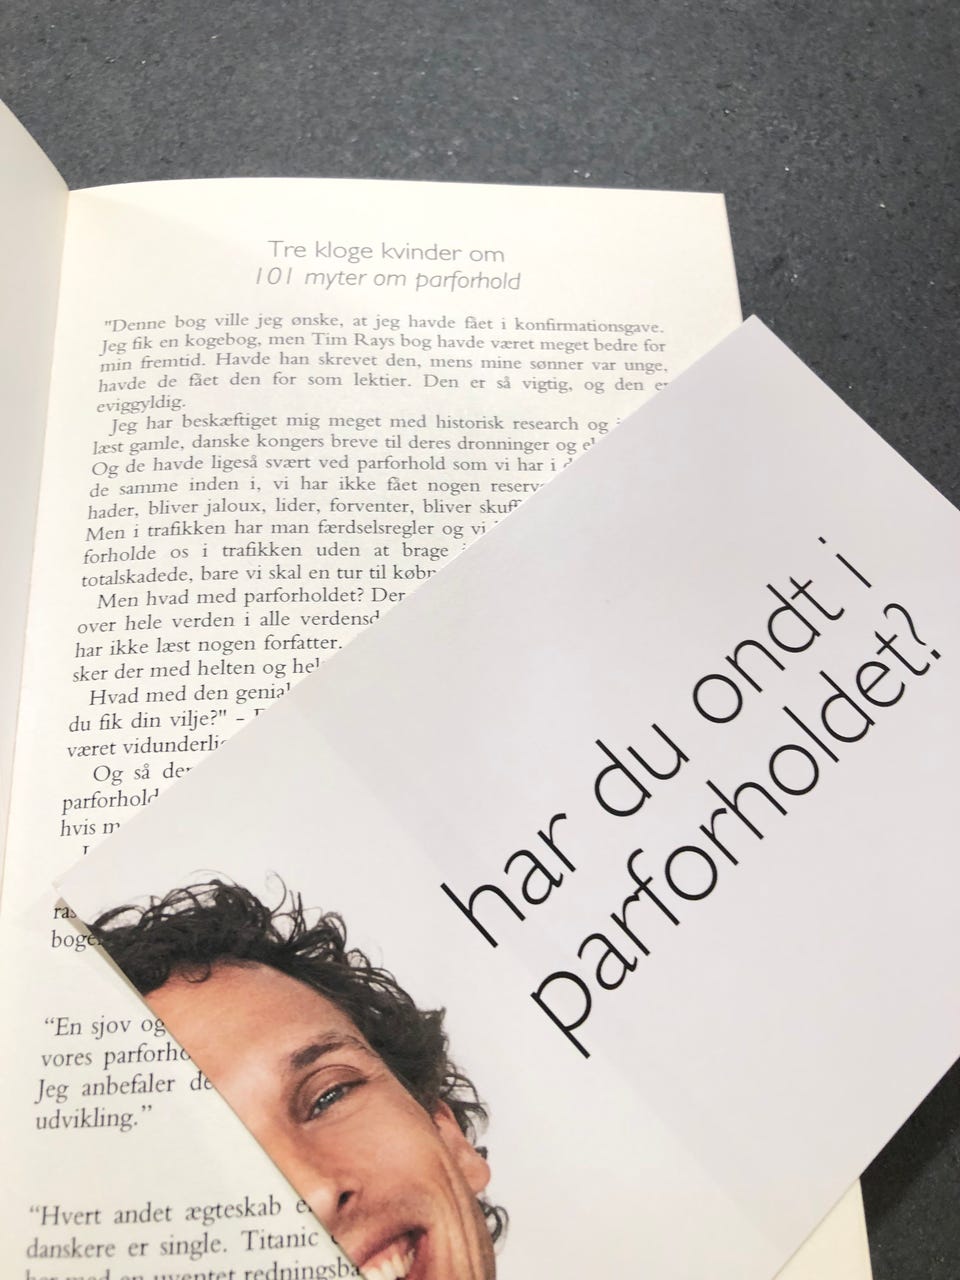 Tre kloge kvinder om
101 myter om parforhold
"Denne bog ville jeg ønske, at jeg havde fået i konfirmationsgave.
Jeg fik en kogebog, men Tim Rays bog havde været meget bedre for
min fremtid. Havde han skrevet den, mens mine sønner var unge,
havde de fået den for som lektier. Den er så vigtig, og den er
eviggyldig.
Jeg har beskæftiget mig meget med historisk research og
læst gamle, danske kongers breve til deres dronninger og
Og de havde ligeså svært ved parforhold som vi har i
de samme inden i, vi har ikke fået nogen
hader, bliver jaloux, lider, forventer, bliver
Men i trafikken har man færdselsregler og vi
forholde os i trafikken uden at brage
totalskadede, bare vi skal en tur til
Men hvad med parforholdet? Der
over hele verden i alle
har ikke læst nogen forfatter.
sker der med helten og
Hvad med den
du fik din vilje?" -
været
Og så
parforhold
hvis
boge
"En sjov og
vores
Jeg anbefaler
udvikling."
"Hvert andet ægteskab
danskere er single. Titanic
har med en uventet
har du ondt i
parforholdet?